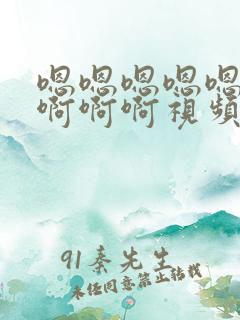 嗯嗯嗯嗯嗯
啊啊啊視頻
91秦先生
未经同意禁止转载